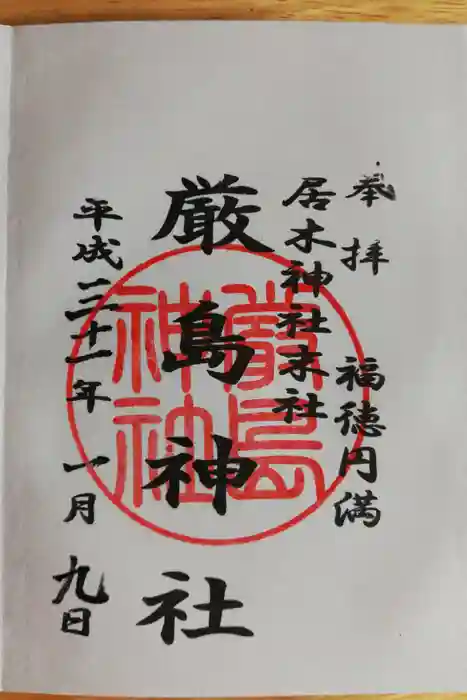 奉拝 福徳円満
居木神社末社
厳島神社
平成三十一年 一月 九日
厳島神社